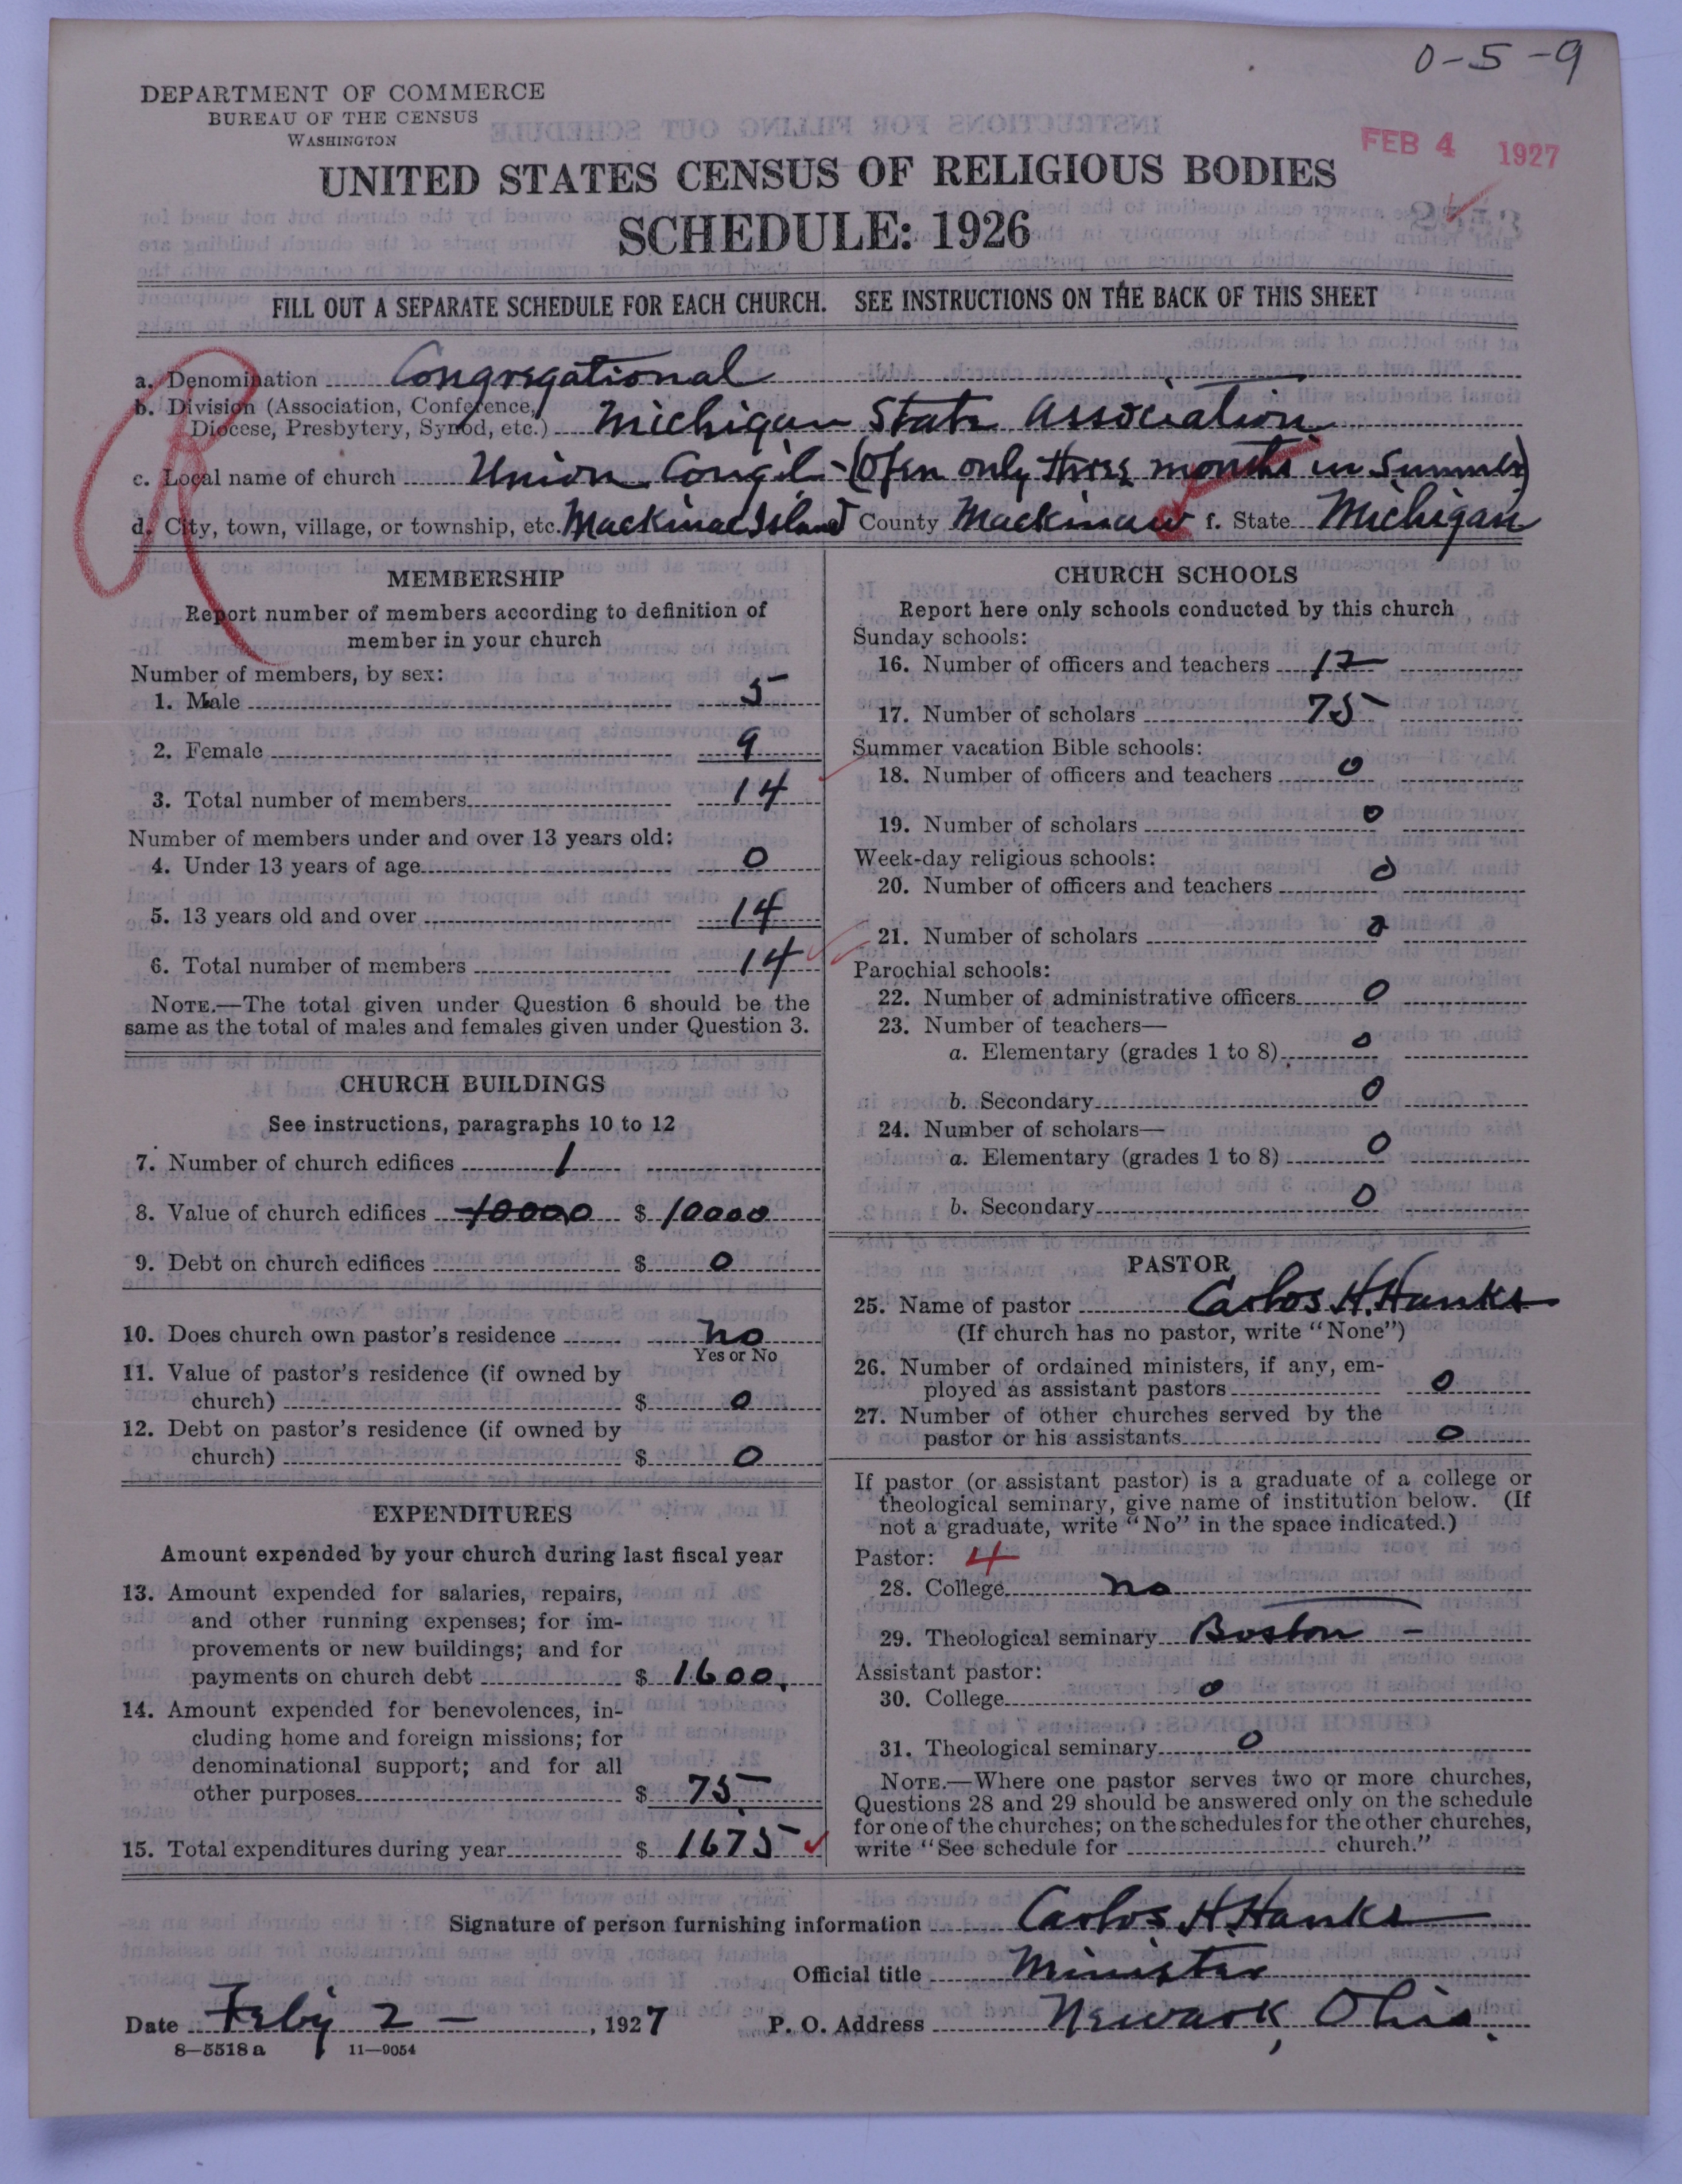 0-5-9
DEPARTMENT OF COMMERCE
BUREAU OF THE CENSUS
WASHINGTON
FEB 4 1927
UNITED STATES CENSUS OF RELIGIOUS BODIES
SCHEDULE: 1926
FILL OUT A SEPARATE SCHEDULE FOR EACH CHURCH. SEE INSTRUCTIONS ON THE BACK OF THIS SHEET
a. Denomination Congregational
b. Division (Association, Conference,
Diocese, Presbytery, Synod, etc.) Michigan State Association
c. Local name of church Union Cong'l - (Open only three months in Summer)
d. City, town, village, or township, etc. Mackinac Island County Mackinaw f. State Michigan
MEMBERSHIP
Report number of members according to definition of
member in your church
Number of members, by sex:
1. Male 5
2. Female 9
3. Total number of members 14
Number of members under and over 13 years old:
4. Under 13 years of age 0
5. 13 years old and over 14
6. Total number of members 14
NOTE.—The total given under Question 6 should be the
same as the total of males and females given under Question 3.
CHURCH BUILDINGS
See instructions, paragraphs 10 to 12
7. Number of church edifices 1
8. Value of church edifices 10000 $ 10000
9. Debt on church edifices $ 0
10. Does church own pastor's residence no
Yes or No
11. Value of pastor's residence (if owned by
church) $ 0
12. Debt on pastor's residence (if owned by
church) $ 0
EXPENDITURES
Amount expended by your church during last fiscal year
13. Amount expended for salaries, repairs,
and other running expenses; for im-
provements or new buildings; and for
payments on church debt $ 1600.
14. Amount expended for benevolences, in-
cluding home and foreign missions; for
denominational support; and for all
other purposes $ 75
15. Total expenditures during year $ 1675
CHURCH SCHOOLS
Report here only schools conducted by this church
Sunday schools:
16. Number of officers and teachers 12
17. Number of scholars 75
Summer vacation Bible schools:
18. Number of officers and teachers 0
19. Number of scholars 0
Week-day religious schools:
20. Number of officers and teachers 0
21. Number of scholars 0
Parochial schools:
22. Number of administrative officers 0
23. Number of teachers—
a. Elementary (grades 1 to 8) 0
b. Secondary 0
24. Number of scholars—
a. Elementary (grades 1 to 8) 0
b. Secondary 0
PASTOR
25. Name of pastor Carlos H. Hanks
(If church has no pastor, write "None")
26. Number of ordained ministers, if any, em-
ployed as assistant pastors 0
27. Number of other churches served by the
pastor or his assistants 0
If pastor (or assistant pastor) is a graduate of a college or
theological seminary, give name of institution below. (If
not a graduate, write "No" in the space indicated.)
Pastor: 4
28. College no
29. Theological seminary Boston -
Assistant pastor:
30. College 0
31. Theological seminary 0
NOTE.—Where one pastor serves two or more churches,
Questions 28 and 29 should be answered only on the schedule
for one of the churches; on the schedules for the other churches,
write "See schedule for church."
Signature of person furnishing information Carlos H. Hanks
Official title Minister
Date Feby 2 -, 1927 P. O. Address Newark, Ohio.
8-5518a 11-9054